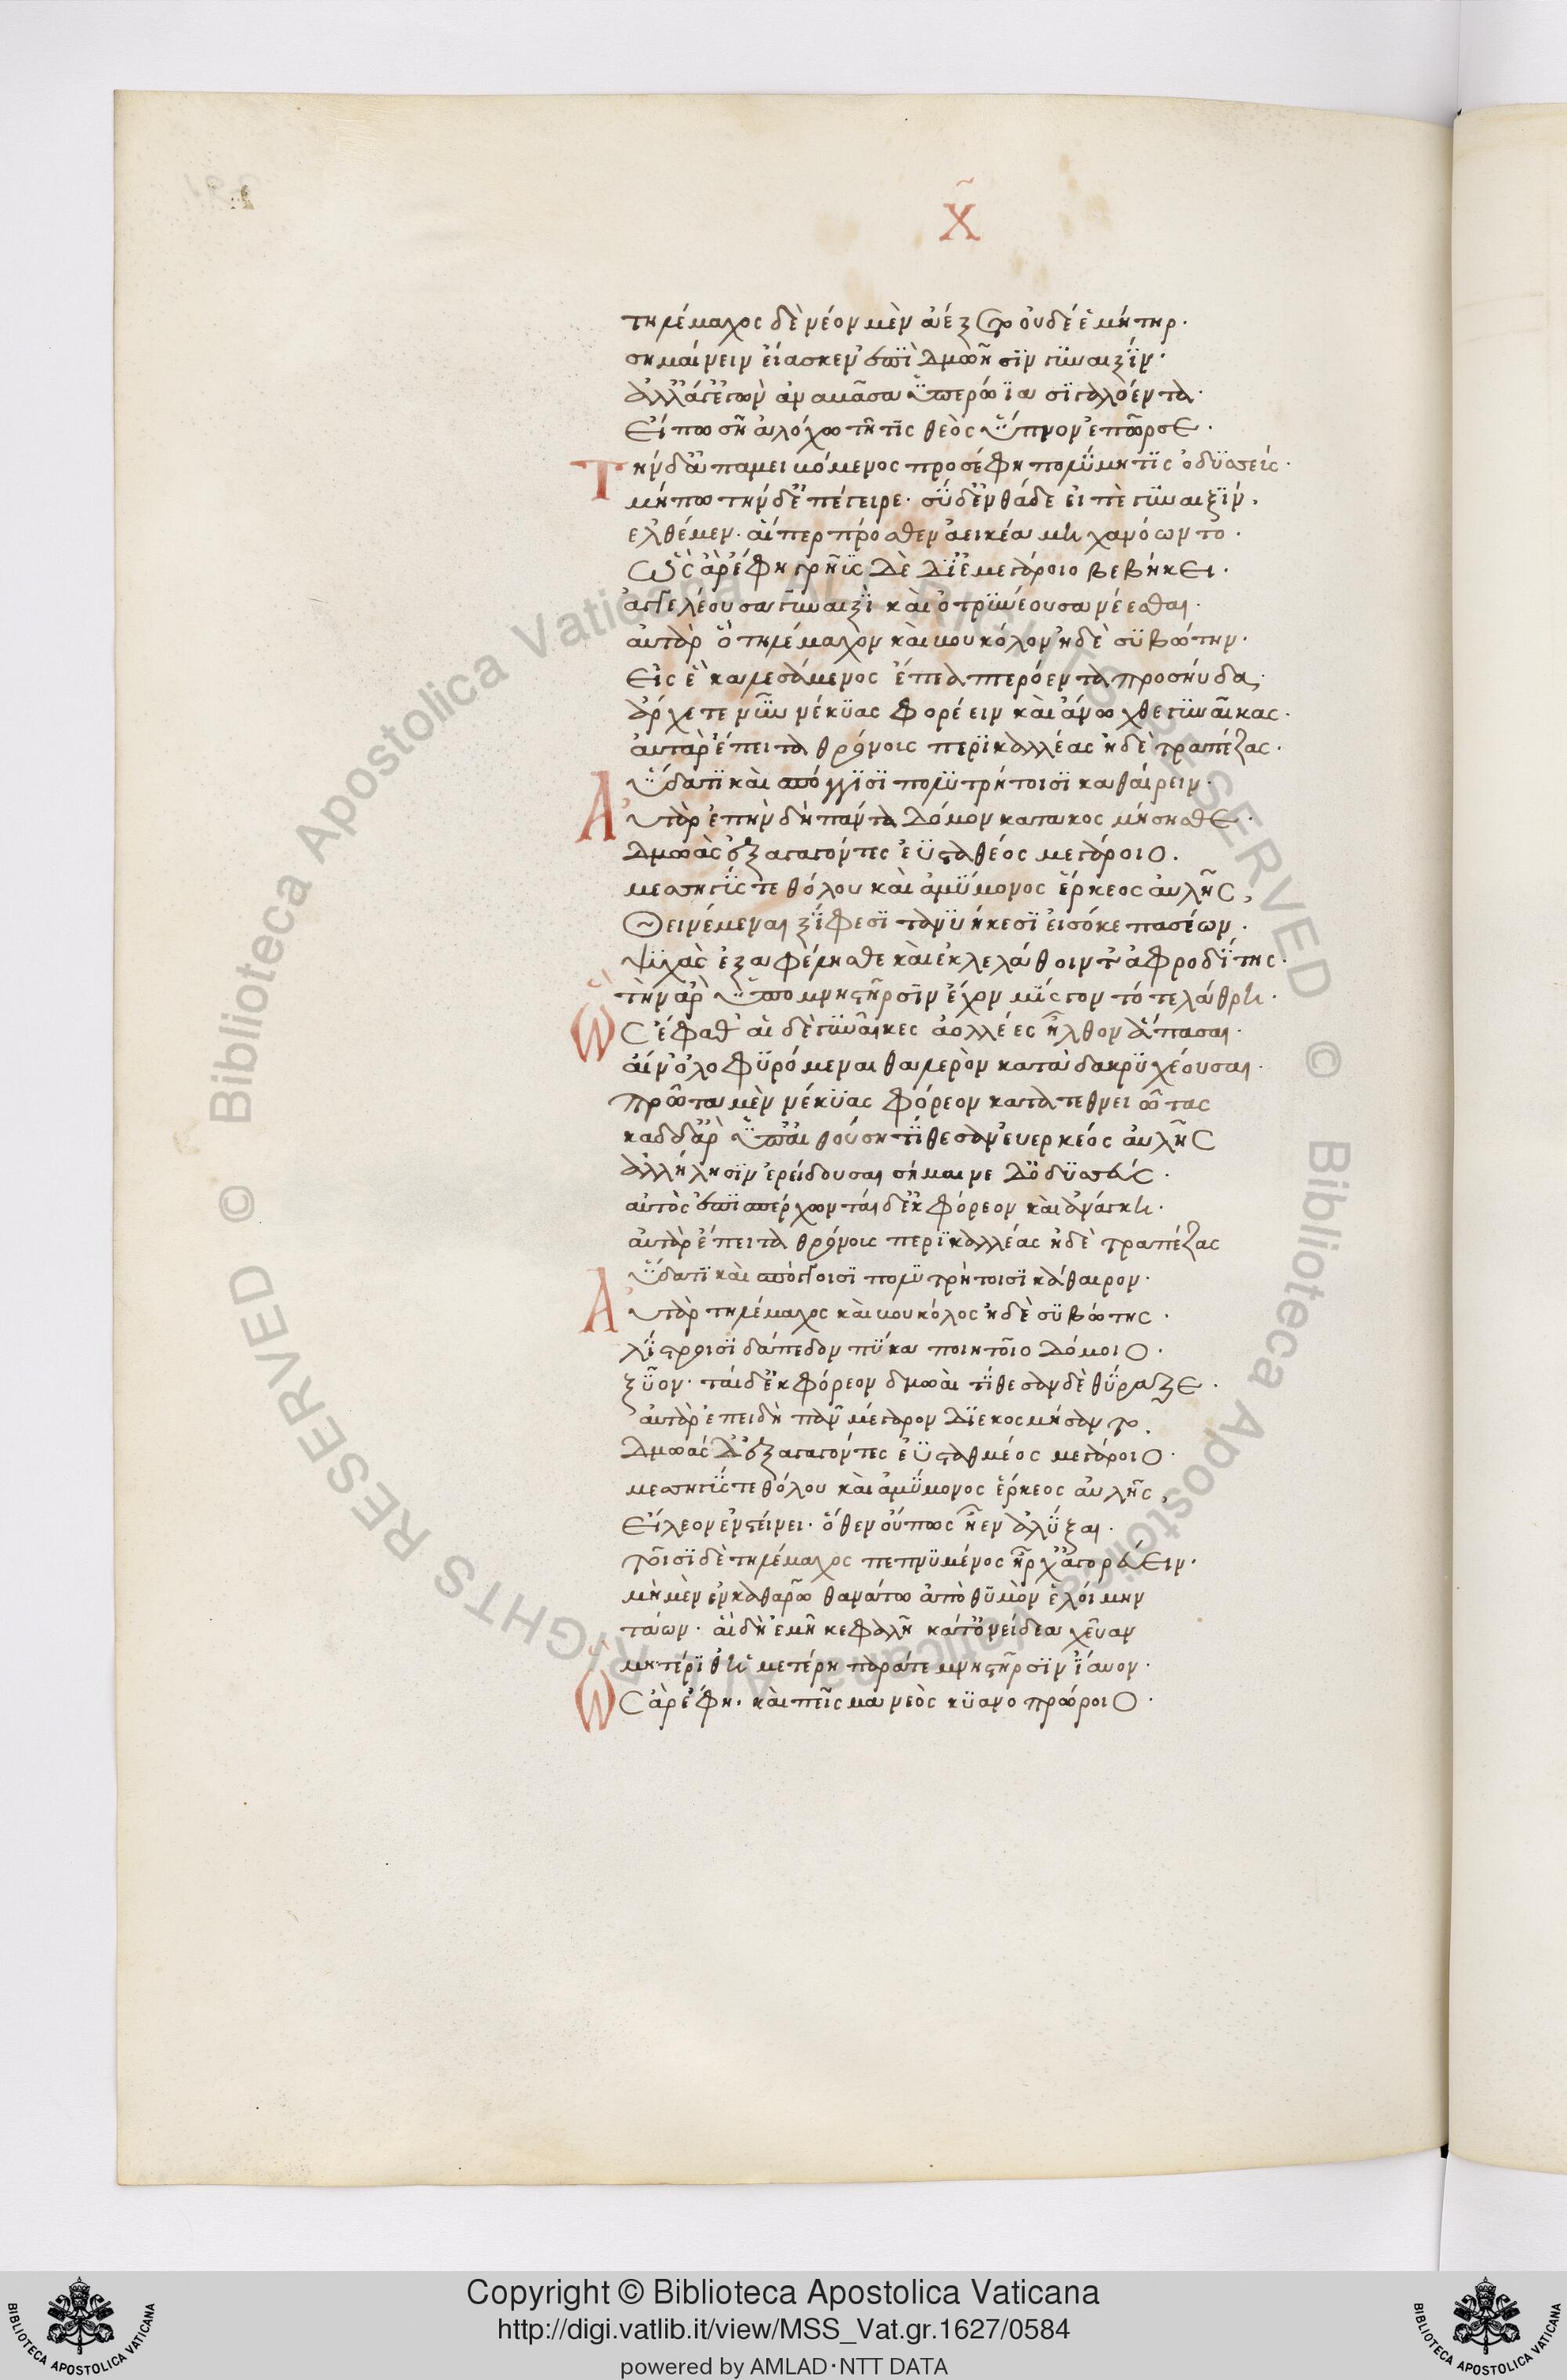 Χ
τηλέμαχος δὲ νέον μὲν ἀέξετο οὐδέ ἑ μήτηρ·
σημαίνειν εἴασκεν ἐπὶ δμωῆσϊν γϋναιξΐν·
ἀλλ' ἄγ' ἐγὼν ἀναβᾶσα ὑπερώϊα σϊγαλόεντα·
Εἴπω σῆ ἀλόχω τῆ τὶς θεὸς ὕπνον ἐπῶρσε·
Τὴν δ' ἀπαμειβόμενος προσέφη πολϋμητϊς ὀδϋσσεύς·
μήπω τήνδ' ἐπέγειρε· σὺ δ' ἐνθάδε εἰπὲ γϋναιξΐν,
ελθέμεν· αἵπερ πρόσθεν ἀεικέα μηχανόωντο·
Ὣς ἀρ' ἔφη γρηῢς δὲ δϊ' ἐμεγάροιο βεβήκει·
ἀγγελέουσα γϋναιξῒ καὶ ὀτρϋνέουσα νέεσθαι·
αὐτὰρ ὃ τηλέμαχον καὶ βουκόλον ἠδὲ σϋβώτην·
Εἰς ἓ καλεσάμενος ἔπεα πτερόεντα προσηύδα,
ἄρχετε νῦν νέκϋας φορέειν καὶ ἄνωχθε γϋναῖκας·
ἀυτὰρ ἔπειτα θρόνους περϊκαλλέας ἠδὲ τραπέζας·
ὕδατϊ καὶ σπόγγϊσϊ πολϋτρήτοισϊ καθαίρειν·
Ἀυτὰρ ἐπὴν δὴ πάντα δόμον κατακοσμήσησθε·
δμωὰς ἐξαγαγόντες ἐϋσταθέος μεγάροιο.
μεσσηγΰς τε θόλου καὶ ἀμΰμονος ἕρκεος ἀυλῆς,
Θεινέμεναι ξΐφεσϊ τανϋήκεσϊ εἰσόκε πασέων·
ψϋχὰς ἐξαφέλησθε καὶ ἐκλελάθοιντ' ἀφροδΐτης·
τὴν ἀρ' ὑπο μνηστῆρσϊν ἔχον μΐσγοντό τε λάθρη·
Ὣς ἔφαθ' αἱ δὲ γϋναῖκες ἀολλέες ἦλθον ἅπασαι·
αἴν' ὀλοφϋρόμεναι θαλερὸν κατὰ δακρϋ χέουσαι·
πρῶτα μὲν νέκϋας φόρεον κατατεθνειῶτας
καδδ' ἄρ' ὑπ' αἰθούση τΐθεσαν ἐυερκέος ἀυλῆς
ἀλλήλησϊν ἐρείδουσαι σήμαινε δ' ὀδϋσσεὺς·
αὐτὸς ἐπϊσπέρχων ταὶ δ' ἐκφόρεον καὶ ἀνάγκη·
ἀυτὰρ ἔπειτα θρόνους περϊκαλλέας ἠδὲ τραπέζας
ὕδατϊ καὶ σπόγγοισϊ πολϋτρήτοισϊ κάθαιρον·
Ἀυτὰρ τηλέμαχος καὶ βουκόλος ἠδὲ σϋβώτης·
λΐστροισϊ δάπεδον πΰκα ποιητοῖο δόμοιο·
ξῦον· ταὶ δ' ἐκφόρεον δμωαὶ τΐθεσαν δὲ θΰραζε·
ἀυτὰρ ἐπειδὴ πᾶν μέγαρον δϊεκοσμήσαντο.
δμωάς δ' ἐξαγαγόντες ἐϋσταθμέος μεγάροιο·
μεσσηγΰς τε θόλου καὶ ἀμΰμονος ἕρκεος ἀυλῆς,
Εἴλεον ἐν στείνει· ὅθεν οὔπως ἦεν ἀλΰξαι·
τοῖσϊ δὲ τηλέμαχος πεπνϋμένος ἦρχ' ἀγορεύειν·
μὴ μὲν ἐν καθαρῶ θανάτω ἀπὸ θῡμὸν ἑλοίμην
τάων· αἳ δὴ ἐμῆ κεφαλῆ κάτ' ὀνείδεα χεῦαν
μητέρϊ θ' ἡμετέρη παρά τε μνηστῆρσϊν ΐαυον·
Ὣς ἀρ' ἔφη· καὶ πεῖσμα νεὸς κϋανοπρώροιο·
Copyright © Biblioteca Apostolica Vaticana
http://digi.vatlib.it/view/MSS_Vat.gr.1627/0584
powered by AMLAD·NTT DATA